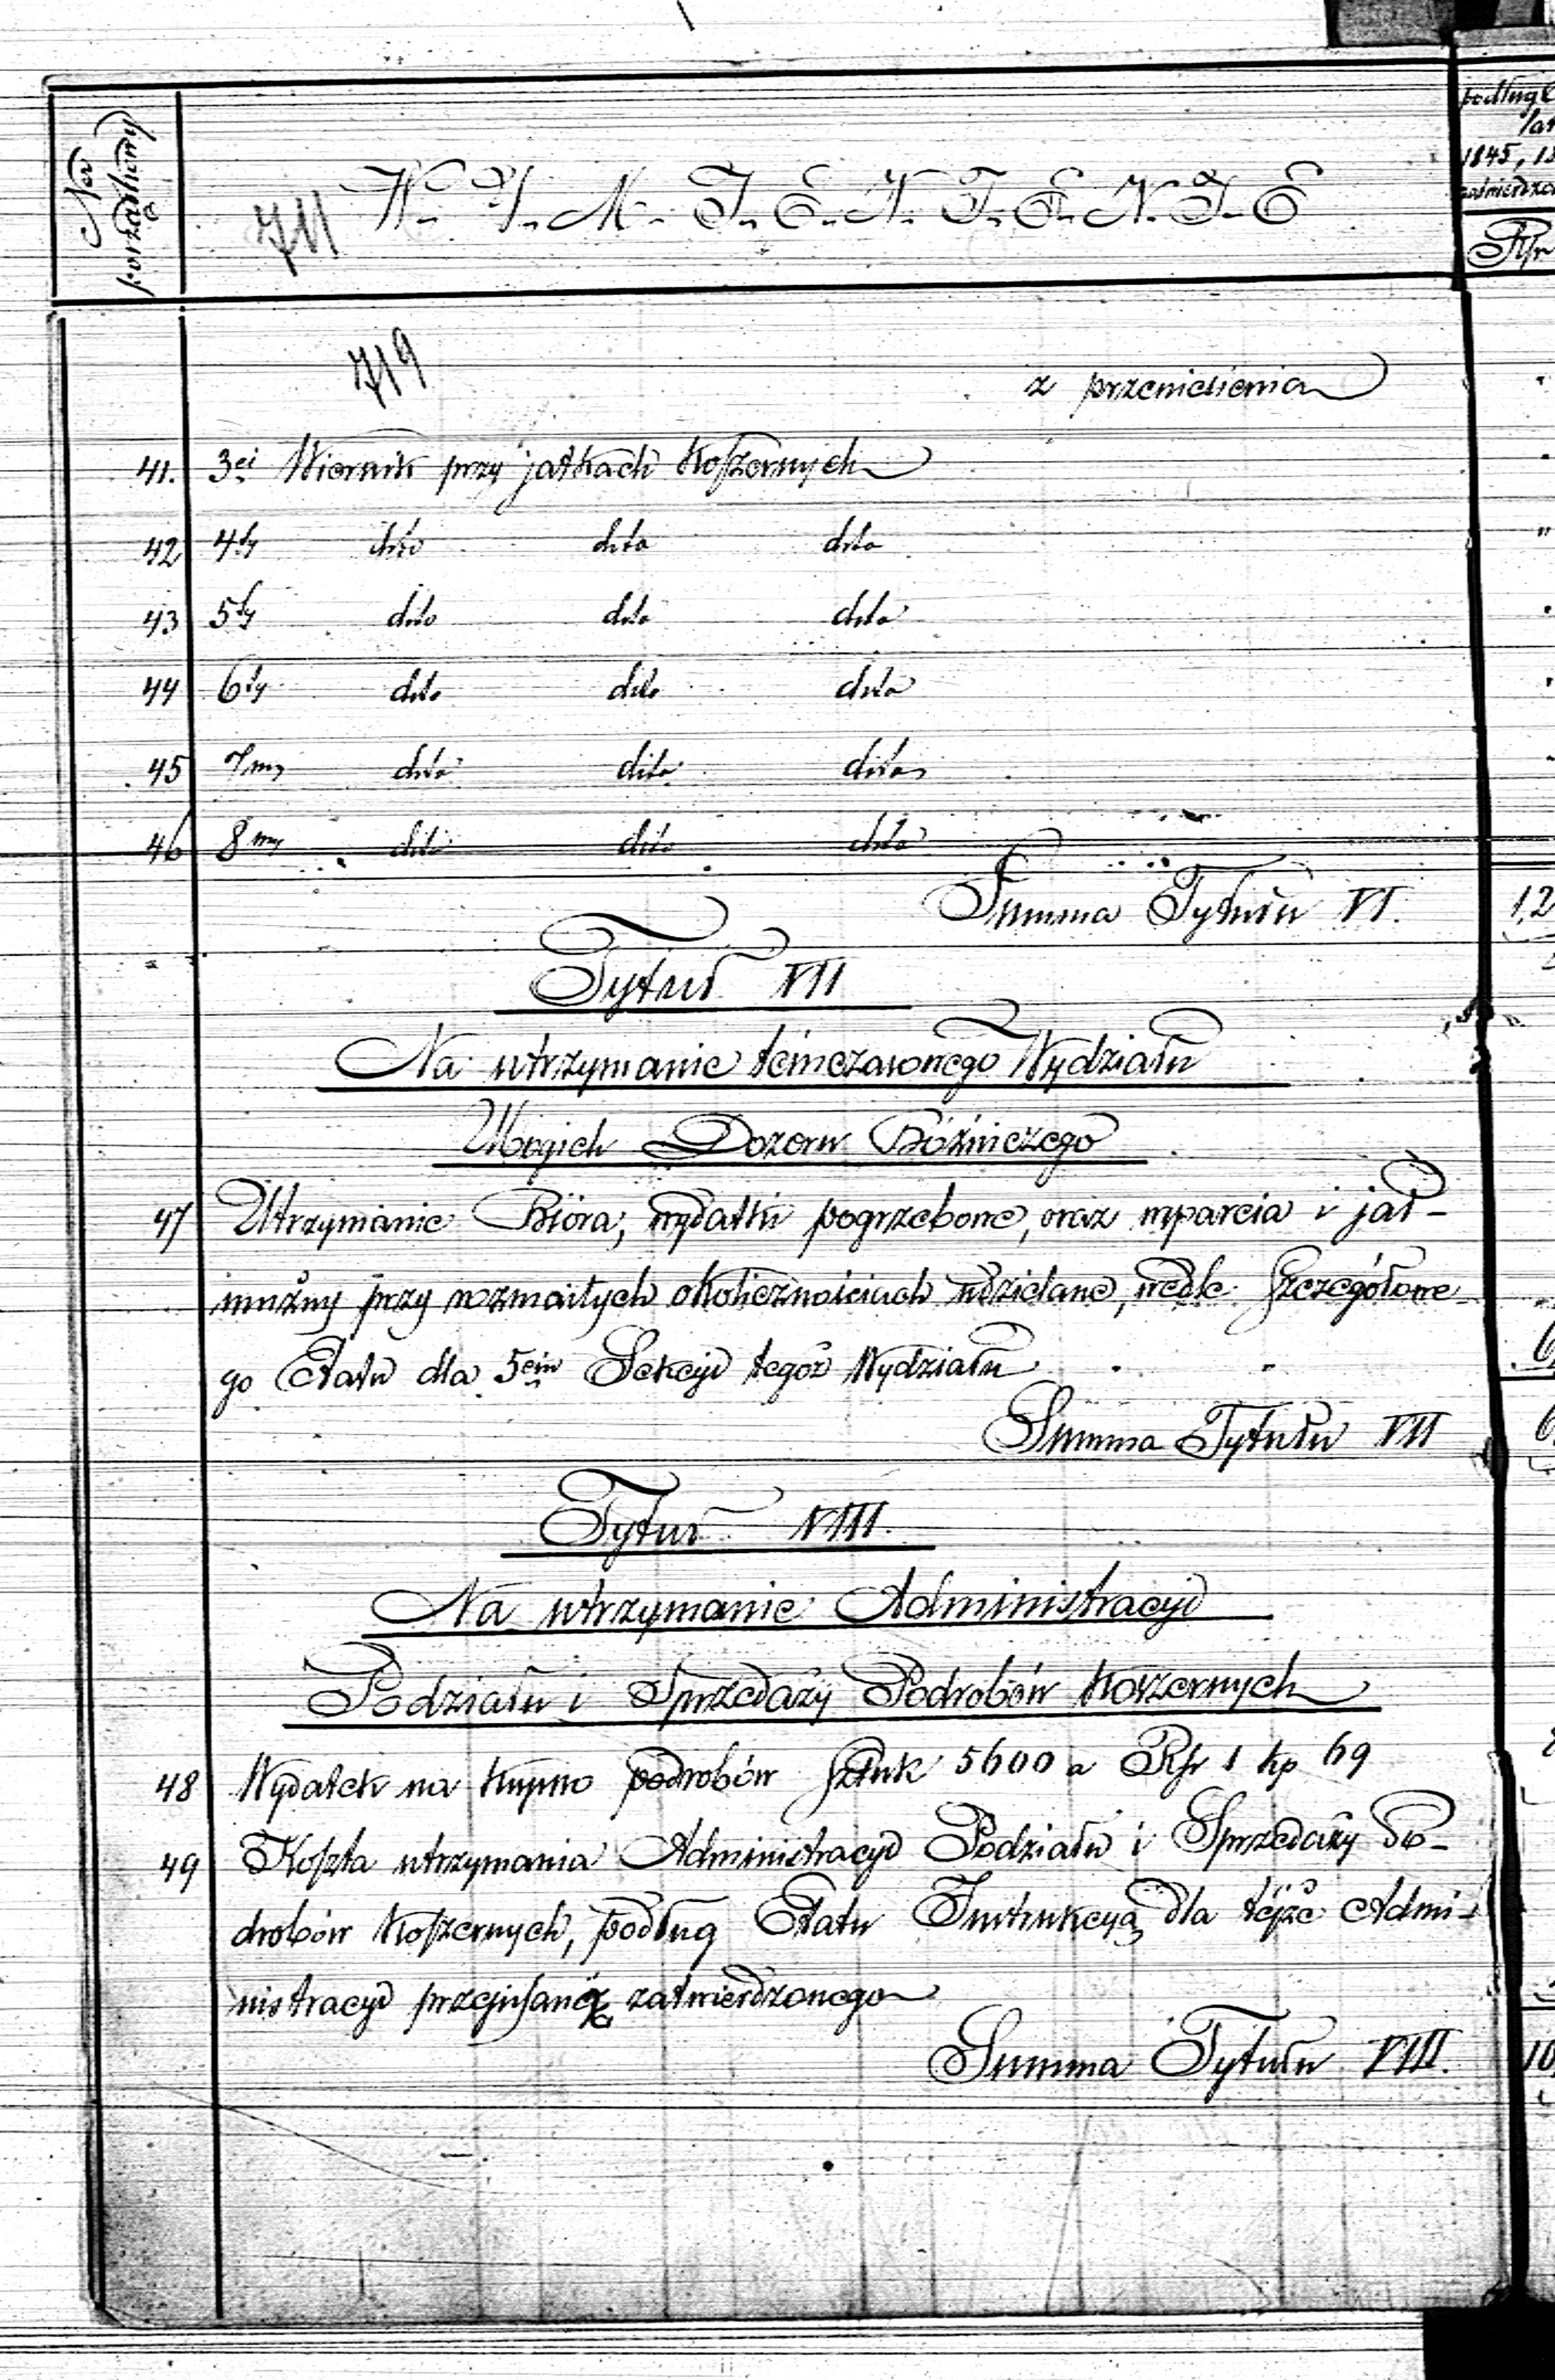 Ner porządkowy
711
W-Y-M-I-E-N-I-E-N-I-E
podług E
lat
1845, 18
zatwierdzo
Rsr
719
z przeniesienia
41. 3ci Wiernik przy jatkach koszernych
42 4ty dito dito dito
43 5ty dito dito dito
44 6ty dito dito dito
45 7my dito dito dito
46 8my dito dito dito
Summa Tytułu VI. 12
Tytuł VII
Na utrzymanie témczasowego Wydziału
Ubogich Dozoru Bóźniczego
47 Utrzymanie Bióra, wydatki pogrzebowe, oraz wparcia i jał-
mużny przy rozmaitych okolicznościach udzielane, wedle szczegółowe
go Etatu dla 5ciu Sekcyi tegoż Wydziału 6
Summa Tytułu VII 6
Tytuł VIII.
Na utrzymanie Administracyi
Podziału i Sprzedaży Podrobów koszernych
48 Wydatek na kupno podrobów sztuk 5600 a Rsr 1 kp 69
49 Koszta utrzymania Administracyi Podziału i Sprzedaży Po-
drobów koszernych, podług Etatu Instrukcyą dla téjże Admi-
nistracyi przepisaną zatwierdzonego
Summa Tytułu VIII. 10